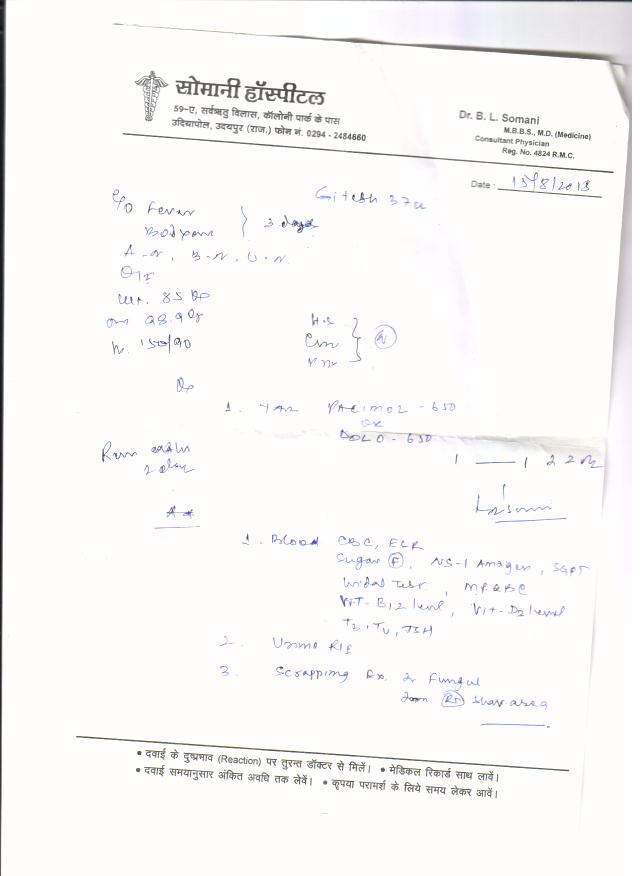 सोमानी हॉस्पीटल
५९-ए, सर्वऋतु विलास, कॉलोनी पार्क के पास
उदियापोल, उदयपुर (राज.) फोन नं. 0294 - 2484660
Dr. B. L. Somani
M.B.B.S., M.D. (Medicine)
Consultant Physician
Reg. No. 4824 R.M.C.
Date : 13/8/2018
Gitesh 37
C/O Fever
3 days
A-N, B-N, U-N
O/E
Wt. 85
150/90
1. TAB PACIMOL - 650
OR
DOLO - 650
2 day
1 — 1
1. Blood CBC, ESR
Sugar (F), NS-1 Antigen, SGPT
Widal Test, MP QBC
VIT-B12 level, Vit-D2 level
T3, T4, TSH
2. Urine R/E
3. Scrapping Ex. Fungul
(RT) area
• दवाई के दुष्प्रभाव (Reaction) पर तुरन्त डॉक्टर से मिलें। • मेडिकल रिकार्ड साथ लावें।
• दवाई समयानुसार अंकित अवधि तक लेवें। • कृपया परामर्श के लिये समय लेकर आवें।